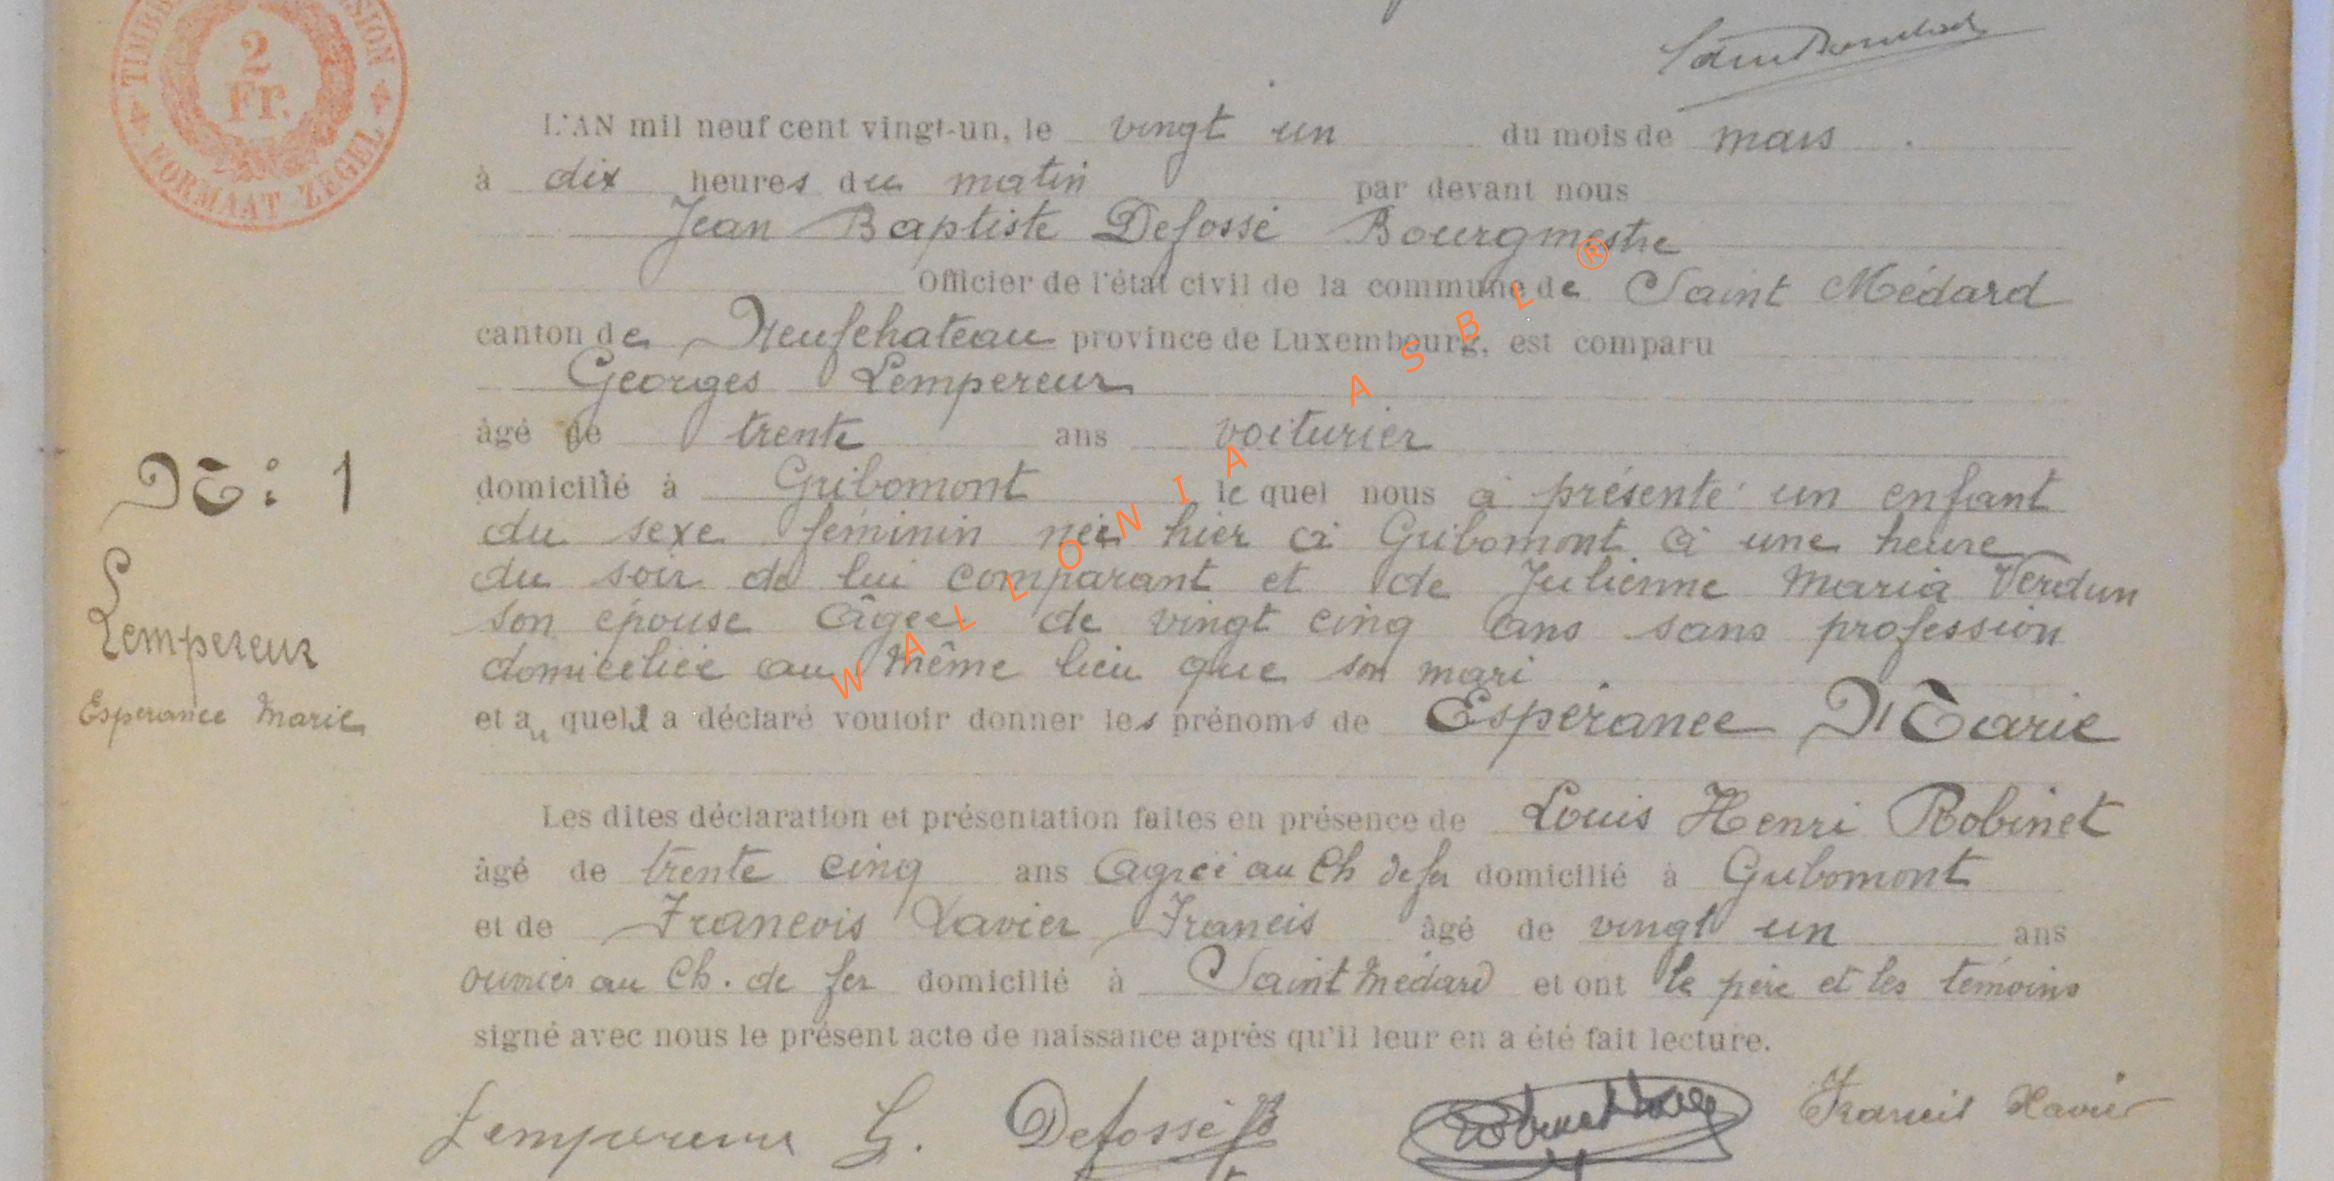 TIMB SION
2
Fr.
FORMAAT ZEGEL
L'AN mil neuf cent vingt-un, le vingt un du mois de mars.
à dix heures du matin par devant nous
Jean Baptiste Defossé Bourgmestre
Officier de l'état civil de la commune de Saint Médard
canton de Neufchateau province de Luxembourg, est comparu
Georges Lempereur
âgé de trente ans voiturier
domicilié à Gribomont lequel nous a présenté un enfant
du sexe féminin née hier à Gribomont à une heure
du soir de lui comparant et de Julienne Maria Verdun
son épouse âgée de vingt cinq ans sans profession
domiciliée au même lieu que son mari
et auquel il a déclaré vouloir donner les prénoms de Espérance Marie
N: 1
Lempereur
Esperance Marie
Les dites déclaration et présentation faites en présence de Louis Henri Robinet
âgé de trente cinq ans agréé au Ch de fer domicilié à Gribomont
et de Francois Xavier Francis âgé de vingt un ans
ouvrier au Ch. de fer domicilié à Saint Médard et ont le père et les témoins
signé avec nous le présent acte de naissance après qu'il leur en a été fait lecture.
Lempereur G. Defossé JB Francis Xavier
WALLONIA ASBL ®